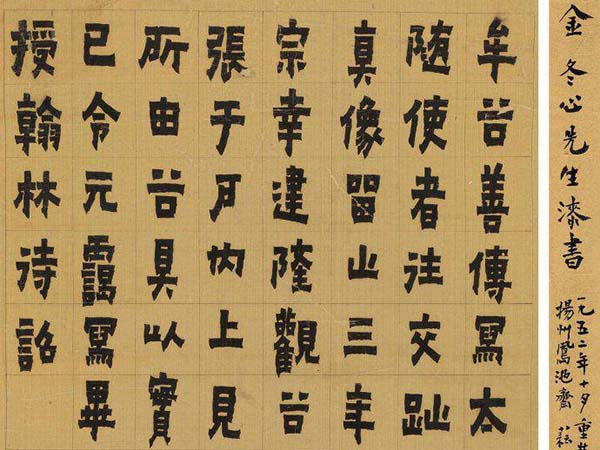 金冬心先生漆書
一九五二年十月重
揚州鳳池齋
牟谷善傳寫太
随使者往交趾
真像留山三年
宗幸建隆觀谷
張于戶內上見
所由谷具以實
已令元靄寫畢
授翰林待詔